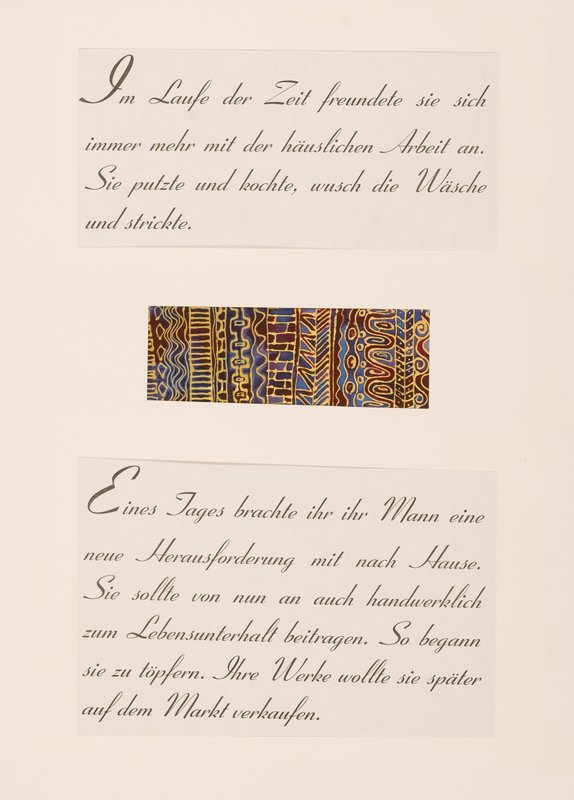 Im Laufe der Zeit freundete sie sich
immer mehr mit der häuslichen Arbeit an.
Sie putzte und kochte, wusch die Wäsche
und strickte.
Eines Tages brachte ihr ihr Mann eine
neue Herausforderung mit nach Hause.
Sie sollte von nun an auch handwerklich
zum Lebensunterhalt beitragen. So begann
sie zu töpfern. Ihre Werke wollte sie später
auf dem Markt verkaufen.